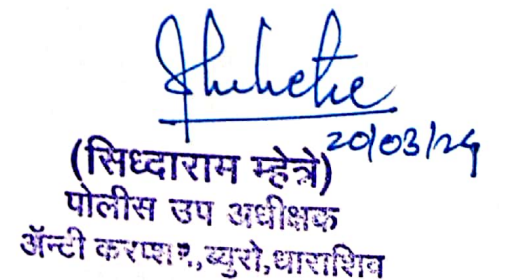 20/03/24
(सिध्दाराम म्हेत्रे)
पोलीस उप अधीक्षक
ॲन्टी करप्शन,ब्युरो,धाराशिव